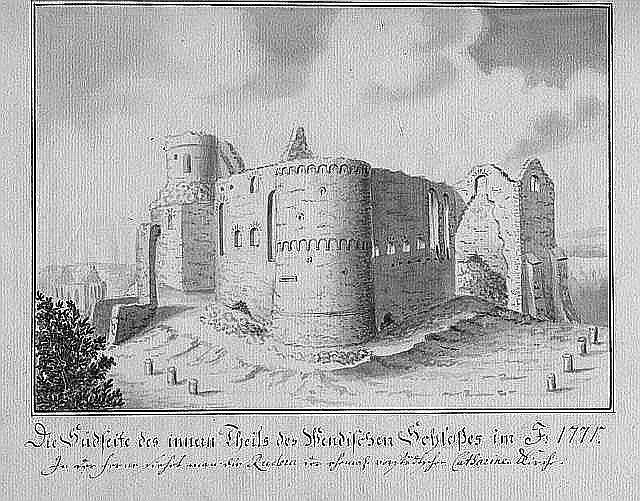 Die Südseite des innern Theils des Wendischen Schloßes im J. 1771.
In der ferne siehet man die der ehemal. Catharinen Kirch.